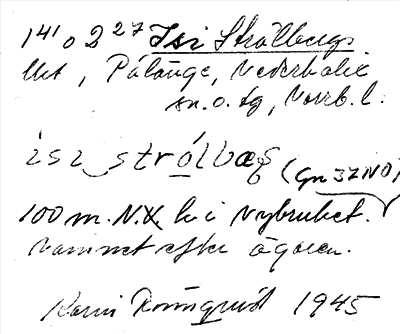 14' o 2 27 Isi Strålbergs
Utt, Pålänge, Nederkalix
sn. o. tg, Norrb. l.
isi strålbæ (Gn 37 NO)
100 m. N.V. h i Nybruket.
Namnet efter ägaren.
Karin Rönnqvist 1945